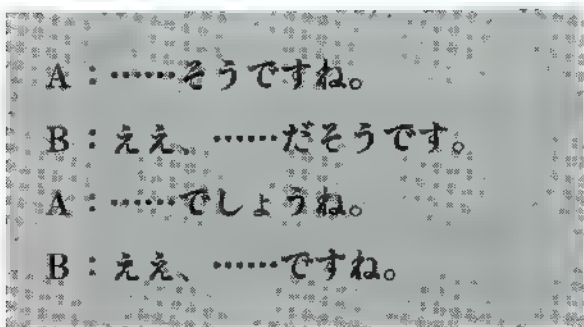 A：……そうですね。
B：ええ、……だそうです。
A：……でしょうね。
B：ええ、……ですね。